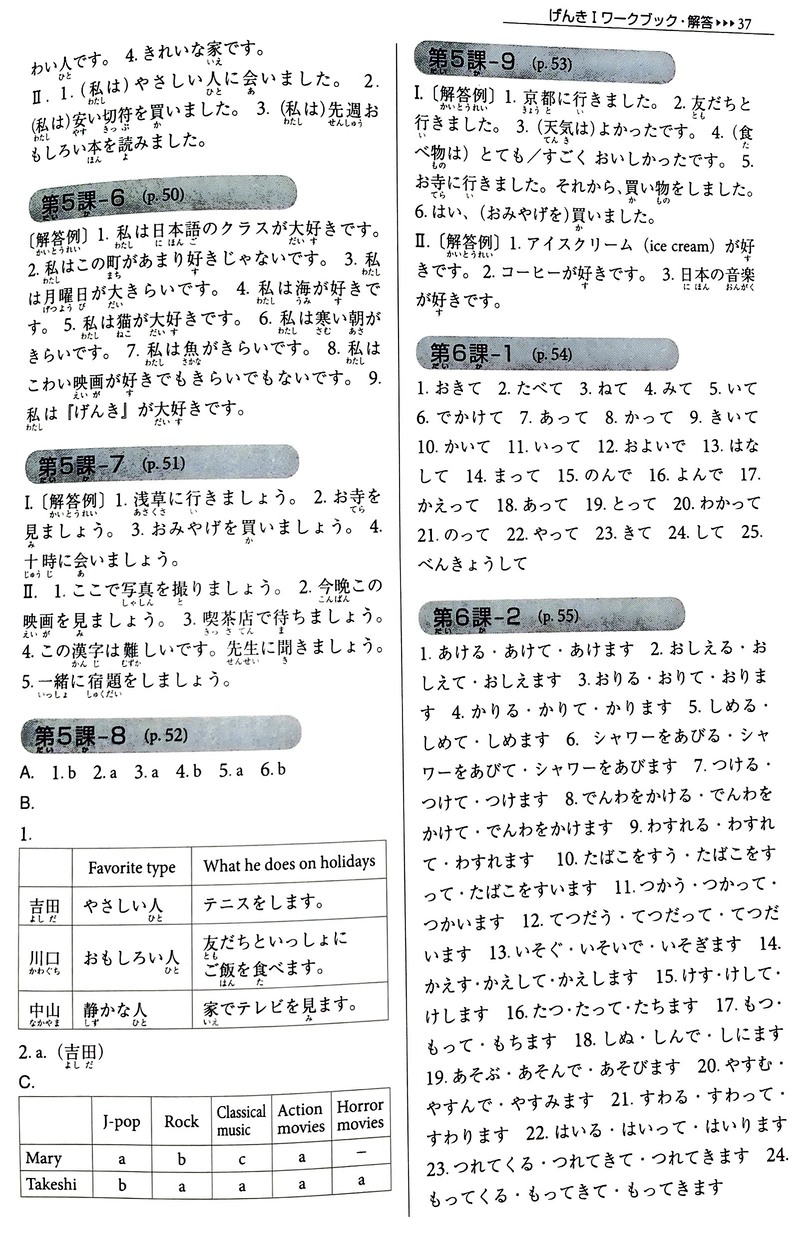 げんきⅠワークブック・解答▸▸▸37
わい人です。 4. きれいな家です。
Ⅱ. 1. (私は)やさしい人に会いました。 2.
(私は)安い切符を買いました。 3. (私は)先週お
もしろい本を読みました。
第5課-6 (p. 50)
〔解答例〕1. 私は日本語のクラスが大好きです。
2. 私はこの町があまり好きじゃないです。 3. 私
は月曜日が大きらいです。 4. 私は海が好きで
す。 5. 私は猫が大好きです。 6. 私は寒い朝が
きらいです。 7. 私は魚がきらいです。 8. 私は
こわい映画が好きでもきらいでもないです。 9.
私は『げんき』が大好きです。
第5課-7 (p. 51)
Ⅰ.〔解答例〕1. 浅草に行きましょう。 2. お寺を
見ましょう。 3. おみやげを買いましょう。 4.
十時に会いましょう。
Ⅱ. 1. ここで写真を撮りましょう。 2. 今晩この
映画を見ましょう。 3. 喫茶店で待ちましょう。
4. この漢字は難しいです。先生に聞きましょう。
5. 一緒に宿題をしましょう。
第5課-8 (p. 52)
A. 1. b 2. a 3. a 4. b 5. a 6. b
B.
1.
Favorite type What he does on holidays
吉田 やさしい人 テニスをします。
川口 おもしろい人 友だちといっしょに
ご飯を食べます。
中山 静かな人 家でテレビを見ます。
2. a.（吉田）
C.
J-pop Rock Classical music Action movies Horror movies
Mary a b c a −
Takeshi b a a a a
第5課-9 (p. 53)
Ⅰ.〔解答例〕1. 京都に行きました。 2. 友だちと
行きました。 3. (天気は)よかったです。 4. (食
べ物は) とても／すごく おいしかったです。 5.
お寺に行きました。それから、買い物をしました。
6. はい、(おみやげを)買いました。
Ⅱ.〔解答例〕1. アイスクリーム (ice cream) が好
きです。 2. コーヒーが好きです。 3. 日本の音楽
が好きです。
第6課-1 (p. 54)
1. おきて 2. たべて 3. ねて 4. みて 5. いて
6. でかけて 7. あって 8. かって 9. きいて
10. かいて 11. いって 12. およいで 13. はな
して 14. まって 15. のんで 16. よんで 17.
かえって 18. あって 19. とって 20. わかって
21. のって 22. やって 23. きて 24. して 25.
べんきょうして
第6課-2 (p. 55)
1. あける・あけて・あけます 2. おしえる・お
しえて・おしえます 3. おりる・おりて・おりま
す 4. かりる・かりて・かります 5. しめる・
しめて・しめます 6. シャワーをあびる・シャ
ワーをあびて・シャワーをあびます 7. つける・
つけて・つけます 8. でんわをかける・でんわを
かけて・でんわをかけます 9. わすれる・わすれ
て・わすれます 10. たばこをすう・たばこをす
って・たばこをすいます 11. つかう・つかって・
つかいます 12. てつだう・てつだって・てつだ
います 13. いそぐ・いそいで・いそぎます 14.
かえす・かえして・かえします 15. けす・けして・
けします 16. たつ・たって・たちます 17. もつ・
もって・もちます 18. しぬ・しんで・しにます
19. あそぶ・あそんで・あそびます 20. やすむ・
やすんで・やすみます 21. すわる・すわって・
すわります 22. はいる・はいって・はいります
23. つれてくる・つれてきて・つれてきます 24.
もってくる・もってきて・もってきます